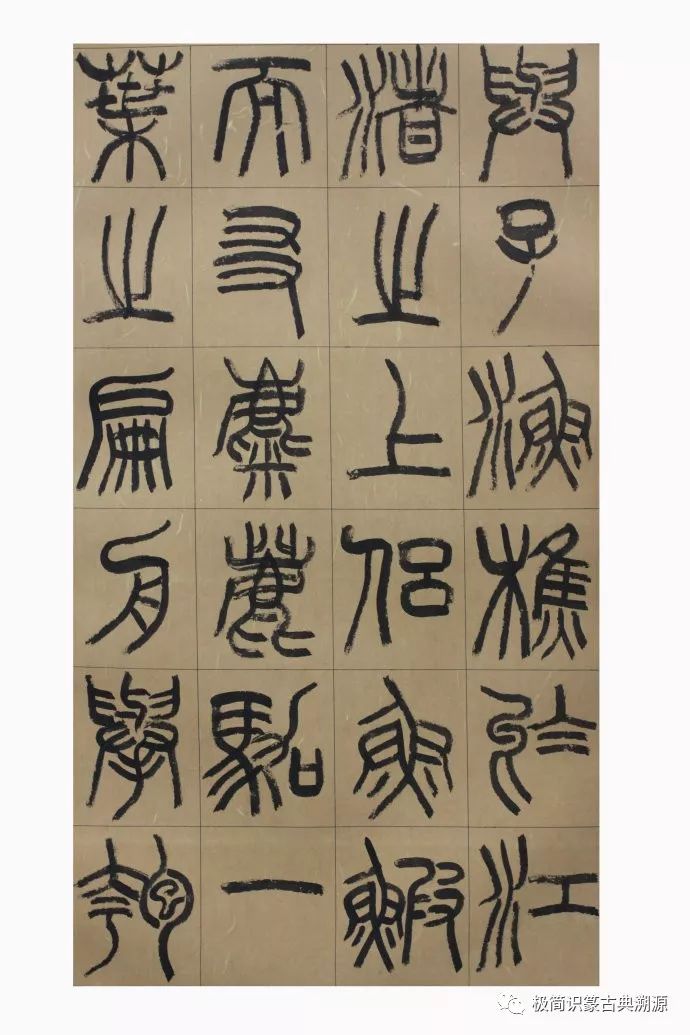 與子漁樵於江
渚之上侶魚鰕
而友麋鹿駕一
葉之扁舟舉匏
极简识篆古典溯源